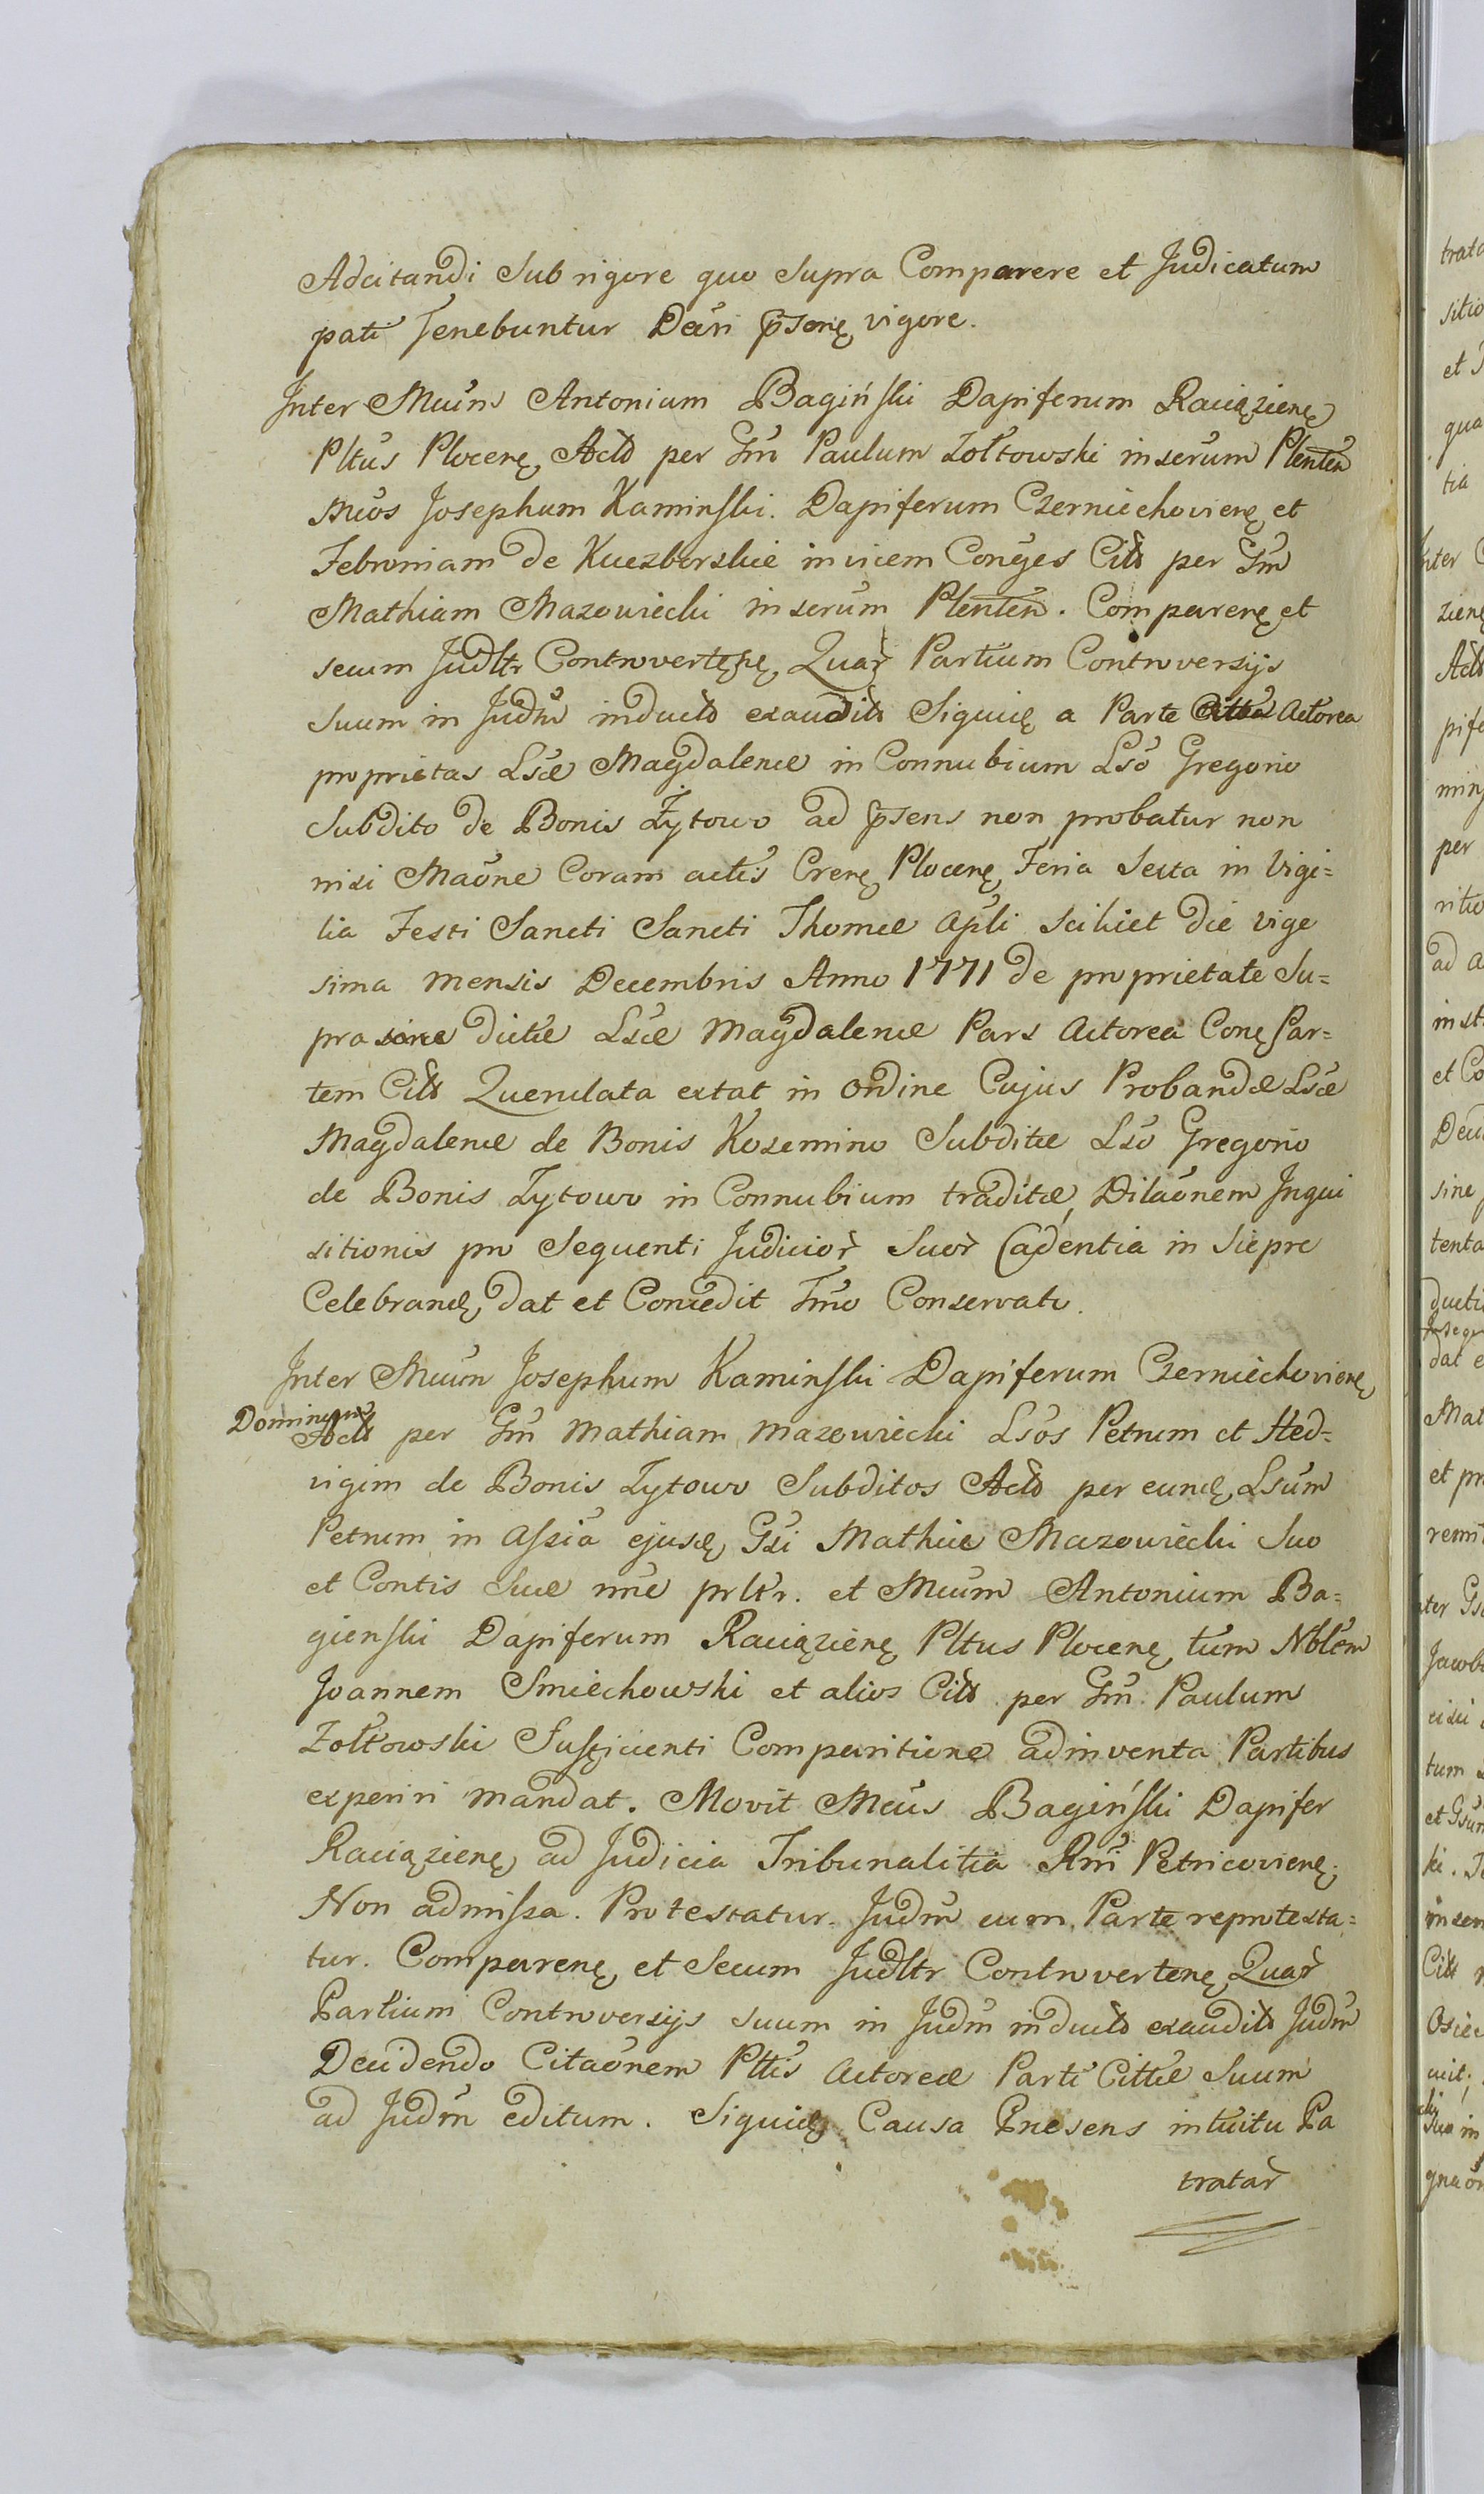 Adcitandi Sub rigore quo Supra Comparere et Judicatum
pati Tenebuntur Decri p̄senę vigore.
Inter Mcum Antonium Bagiński Dapiferum Raciązienę
Pltus Plocenę Actō per Gm̄ Paulum Zołtowski inserum Plenten̄
Mcos Josephum Kaminski. Dapiferum Czerniechovienę et
Febroniam de Kuczborskie invicem Conges Citō per Gm̄
Mathiam Mazowiecki inserum Plenten̄. Comparenę et
secum Judltr Controvertenę Quar̄ Partium Controversijs
Suum in Judm̄ inductō exauditō Siquidę a Parte Actorea
proprietas Lsæ Magdalenæ in Connubium Lso Gregorio
Subdito de Bonis Żytowo ad p̄sens non probatur non
nisi Maōne Coram actis Crenę Plocenę Feria Sexta in Vigi=
lia Festi Sancti Sancti Thomæ Apli Scilicet die vige
sima mensis Decembris Anno 1771 de proprietate Su=
pra dictæ Lsæ Magdalenæ Pars Actorea Conę Par=
tem Citō Querulata extat in ordine Cujus Probandæ Lsæ
Magdalenæ de Bonis Kosemino Subditæ Lso Gregorio
de Bonis Zytowo in Connubium traditæ, Dilaōnem Inqui
sitionis pro Sequenti Judicior̄ Suor̄ Cadentia in Siepre
Celebrandę dat et Concedit Tmo Conservato.
Inter Mcum Josephum Kaminski Dapiferum Czerniechovienę
Dominum
Actō per Gm̄ Mathiam Mazowiecki Lsos Petrum et Hed=
vigim de Bonis Zytowo Subditos Actō per eundę Lsum
Petrum in Assia ejusdę Gsi Mathiæ Mazowiecki Suo
et Contis Suæ nne prltr. et Mcum Antonium Ba=
gienski Dapiferum Raciązienę Pltus Plocenę tum Nblem
Joannem Smiechowski et alios Citō per Gm̄ Paulum
Zołtowski Sufficienti Comparitione adinventa Partibus
experiri mandat. Movit Mcus Bagiński Dapifer
Raciązienę ad Judicia Tribunalitia Rni Petricovienę.
Non admissa. Protestatur. Judm̄ cum Parte reprotesta=
tur. Comparenę et Secum Judltr Controvertenę Quar̄
Partium Controversijs suum in Judm̄ inductō exauditō Judm̄
Decidendo Citaōnem Pttis Actoreæ Parti Cittæ Suum
ad Judm̄ editum. Siquidę Causa Præsens intuitu Pa
tratar̄